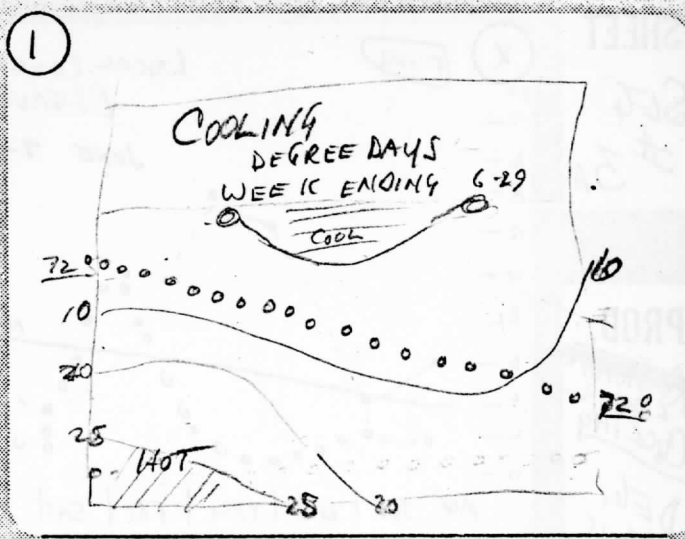 1
COOLING
DEGREE DAYS
WEEK ENDING 6-29
COOL
72°
10
10
20
72°
25
HOT
25
20